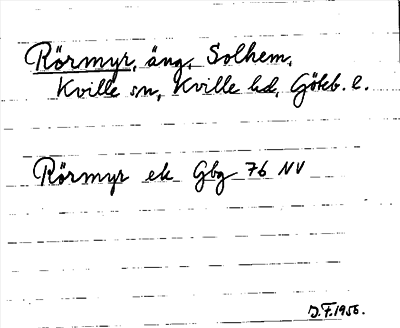 Rörmyr, äng, Solhem,
Kville sn, Kville hd, Göteb. l.
Rörmyr ek Gbg 76 NV
J.F. 1956.